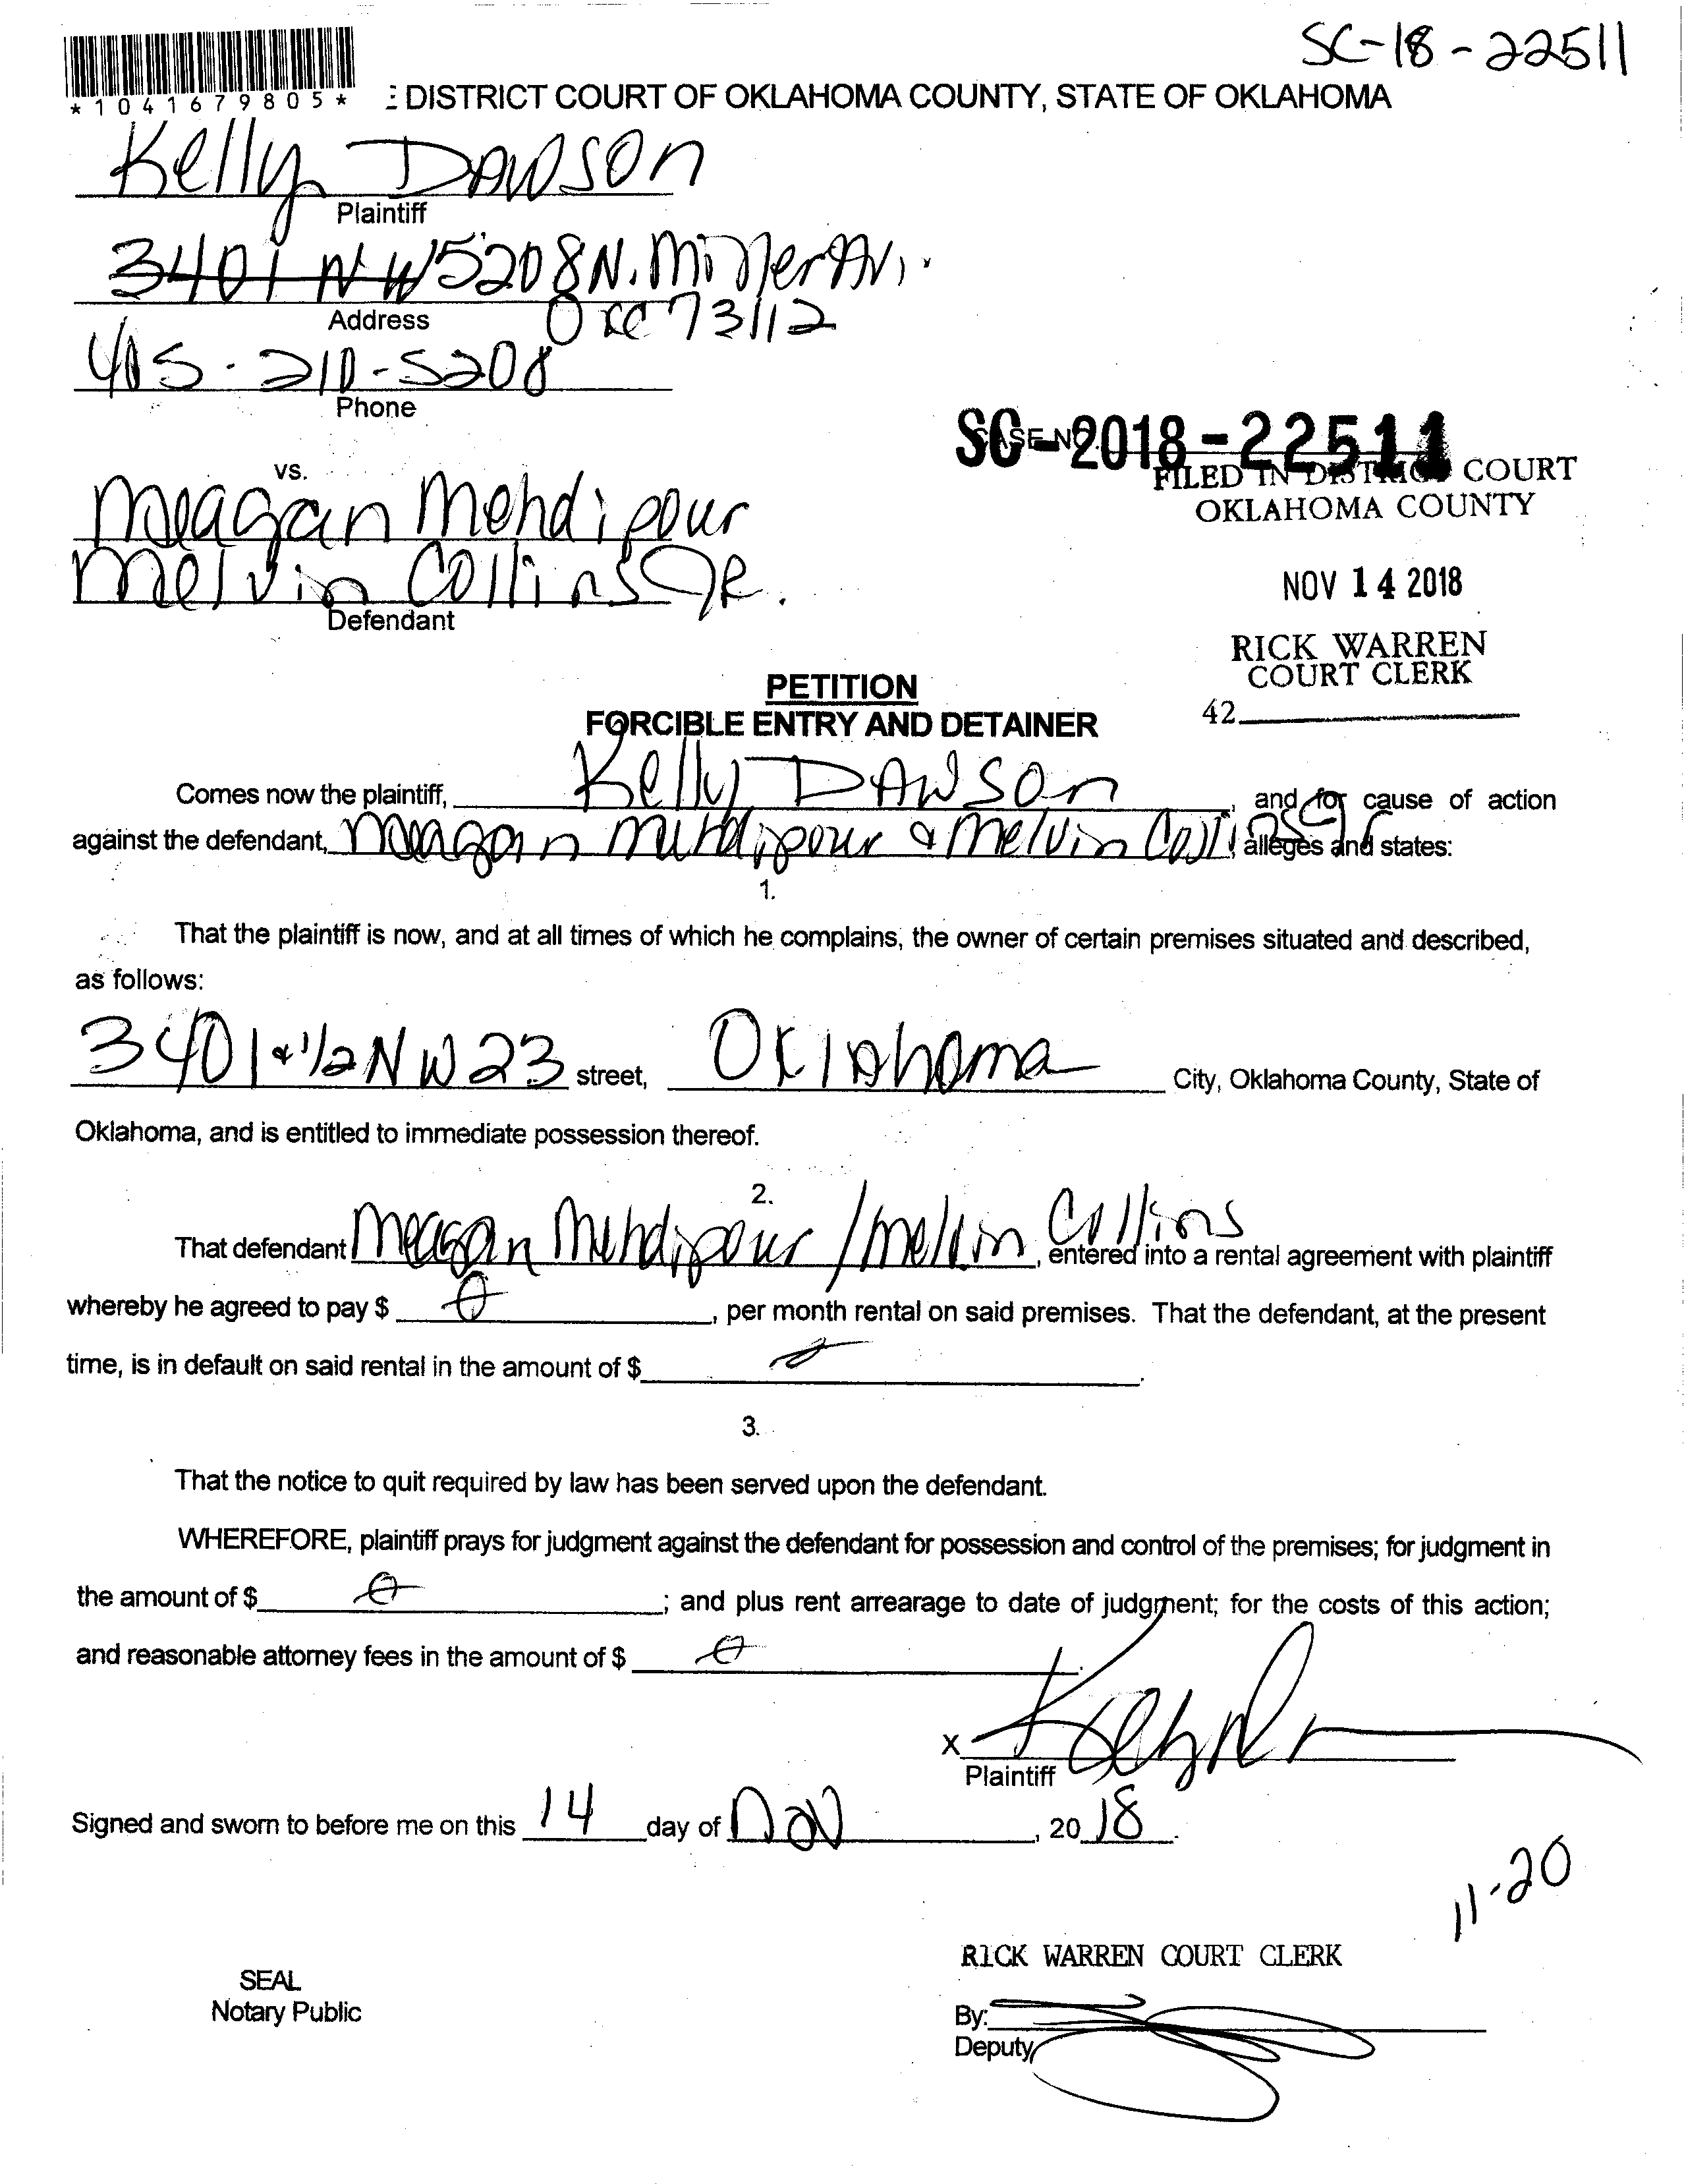 SC-18-22511
*1041679805*
DISTRICT COURT OF OKLAHOMA COUNTY, STATE OF OKLAHOMA
Kelly Dawson
Plaintiff
3401 NW 5208 N. Miller Av.
Address
OKC 73112
405-210-5208
Phone
SC-2018-22511
CASE NO.
FILED IN DISTRICT COURT
OKLAHOMA COUNTY
vs.
Meagan Mehdipour
Melvin Collins JR.
Defendant
NOV 14 2018
RICK WARREN
COURT CLERK
42
PETITION
FORCIBLE ENTRY AND DETAINER
Comes now the plaintiff, Kelly Dawson, and for cause of action
against the defendant, Meagan Mehdipour & Melvin Collins Jr alleges and states:
1.
That the plaintiff is now, and at all times of which he complains, the owner of certain premises situated and described,
as follows:
3401 & 1/2 NW 23 street, Oklahoma City, Oklahoma County, State of
Oklahoma, and is entitled to immediate possession thereof.
2.
That defendant Meagan Mehdipour / Melvin Collins, entered into a rental agreement with plaintiff
whereby he agreed to pay $ 0, per month rental on said premises. That the defendant, at the present
time, is in default on said rental in the amount of $ 0.
3.
That the notice to quit required by law has been served upon the defendant.
WHEREFORE, plaintiff prays for judgment against the defendant for possession and control of the premises; for judgment in
the amount of $ 0; and plus rent arrearage to date of judgment; for the costs of this action;
and reasonable attorney fees in the amount of $ 0.
X
Plaintiff
Signed and sworn to before me on this 14 day of Nov, 2018.
11-20
RICK WARREN COURT CLERK
SEAL
Notary Public
By:
Deputy